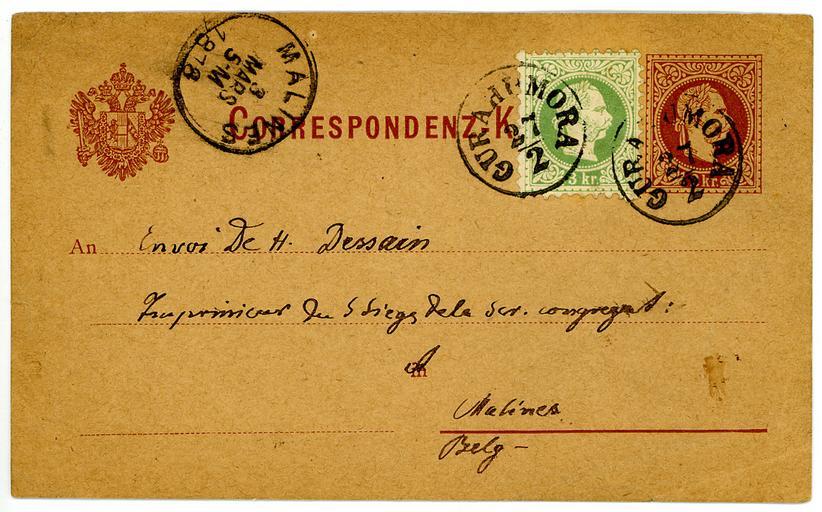 MALINES
3
MARS
5-M
1878
CORRESPONDENZ-K
GURAHUMORA
3 kr.
GURA MORA
kr.
An Envoi De H. Dessain
Imprimieur du S Siege, dela Scr. congregat:
in
Malines
Belg-